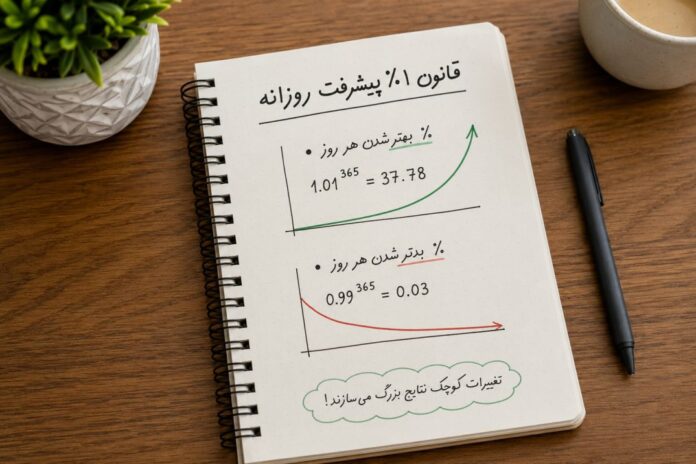 قانون ۱٪ پیشرفت روزانه
• ٪ بهتر شدن هر روز
1.01^365 = 37.78
• ٪ بدتر شدن هر روز
0.99^365 = 0.03
تغییرات کوچک نتایج بزرگ می‌سازند!